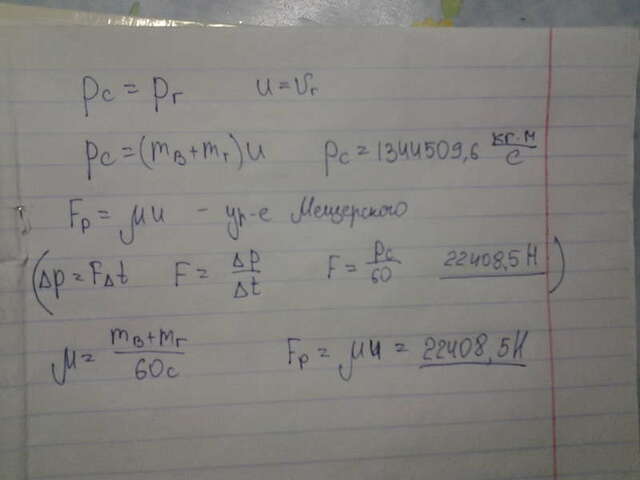 pс = pг u = υг
pс = (mв + mг)u pс = 1344509,6 кг·м/с
Fр = μu – ур-е Мещерского
(Δp = FΔt F = Δp/Δt F = pс/60 22408,5 Н)
μ = mв + mг/60с Fр = μu = 22408,5 Н